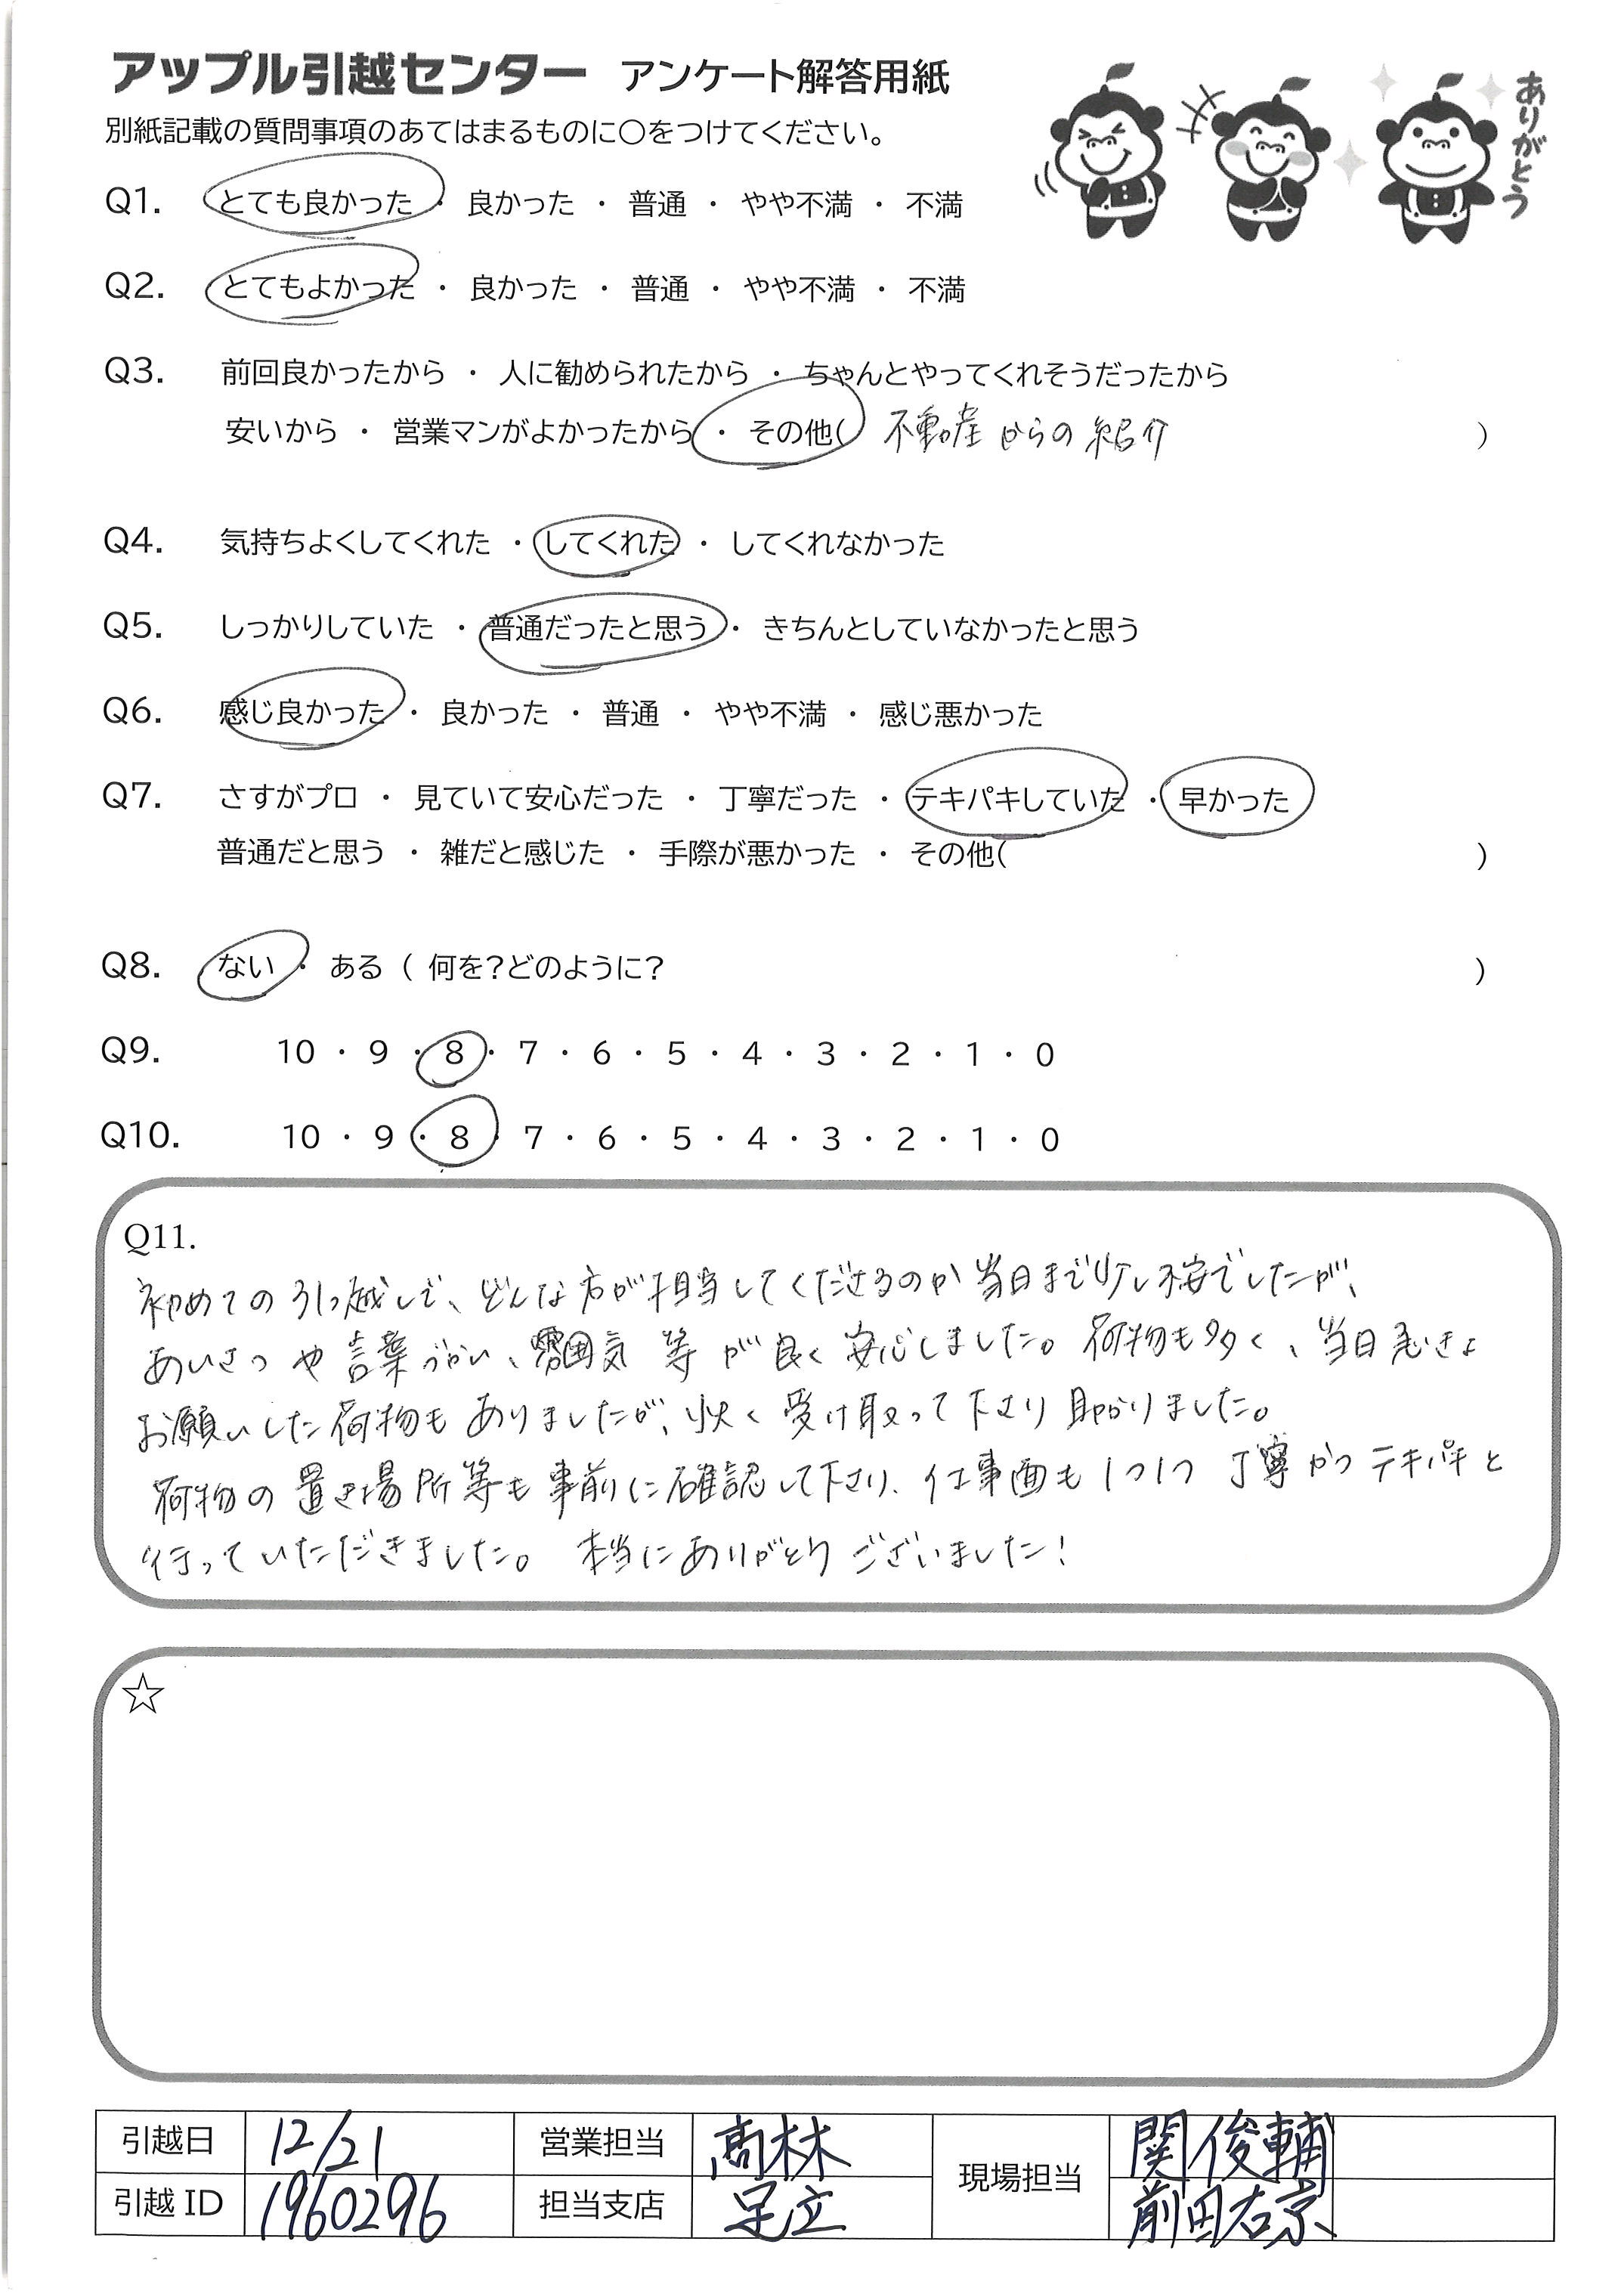 アップル引越センター アンケート解答用紙
別紙記載の質問事項のあてはまるものに○をつけてください。
ありがとう
Q1. とても良かった ・ 良かった ・ 普通 ・ やや不満 ・ 不満
Q2. とてもよかった ・ 良かった ・ 普通 ・ やや不満 ・ 不満
Q3. 前回良かったから ・ 人に勧められたから ・ ちゃんとやってくれそうだったから
安いから ・ 営業マンがよかったから ・ その他( 不動産からの紹介 )
Q4. 気持ちよくしてくれた ・ してくれた ・ してくれなかった
Q5. しっかりしていた ・ 普通だったと思う ・ きちんとしていなかったと思う
Q6. 感じ良かった ・ 良かった ・ 普通 ・ やや不満 ・ 感じ悪かった
Q7. さすがプロ ・ 見ていて安心だった ・ 丁寧だった ・ テキパキしていた ・ 早かった
普通だと思う ・ 雑だと感じた ・ 手際が悪かった ・ その他( )
Q8. ない ・ ある ( 何を?どのように? )
Q9. 10 ・ 9 ・ 8 ・ 7 ・ 6 ・ 5 ・ 4 ・ 3 ・ 2 ・ 1 ・ 0
Q10. 10 ・ 9 ・ 8 ・ 7 ・ 6 ・ 5 ・ 4 ・ 3 ・ 2 ・ 1 ・ 0
Q11.
初めての引っ越しで、どんな方が担当してくださるのか当日まで少し不安でしたが、
あいさつや言葉づかい、雰囲気等が良く安心しました。荷物も多く、当日急きょ
お願いした荷物もありましたが、快く受け取って下さり助かりました。
荷物の置き場所等も事前に確認して下さり、仕事面も1つ1つ丁寧かつテキパキと
行っていただきました。 本当にありがとうございました!
☆
引越日 12/21 営業担当 髙林 現場担当 関俊輔
引越ID 1960296 担当支店 足立 前田右京